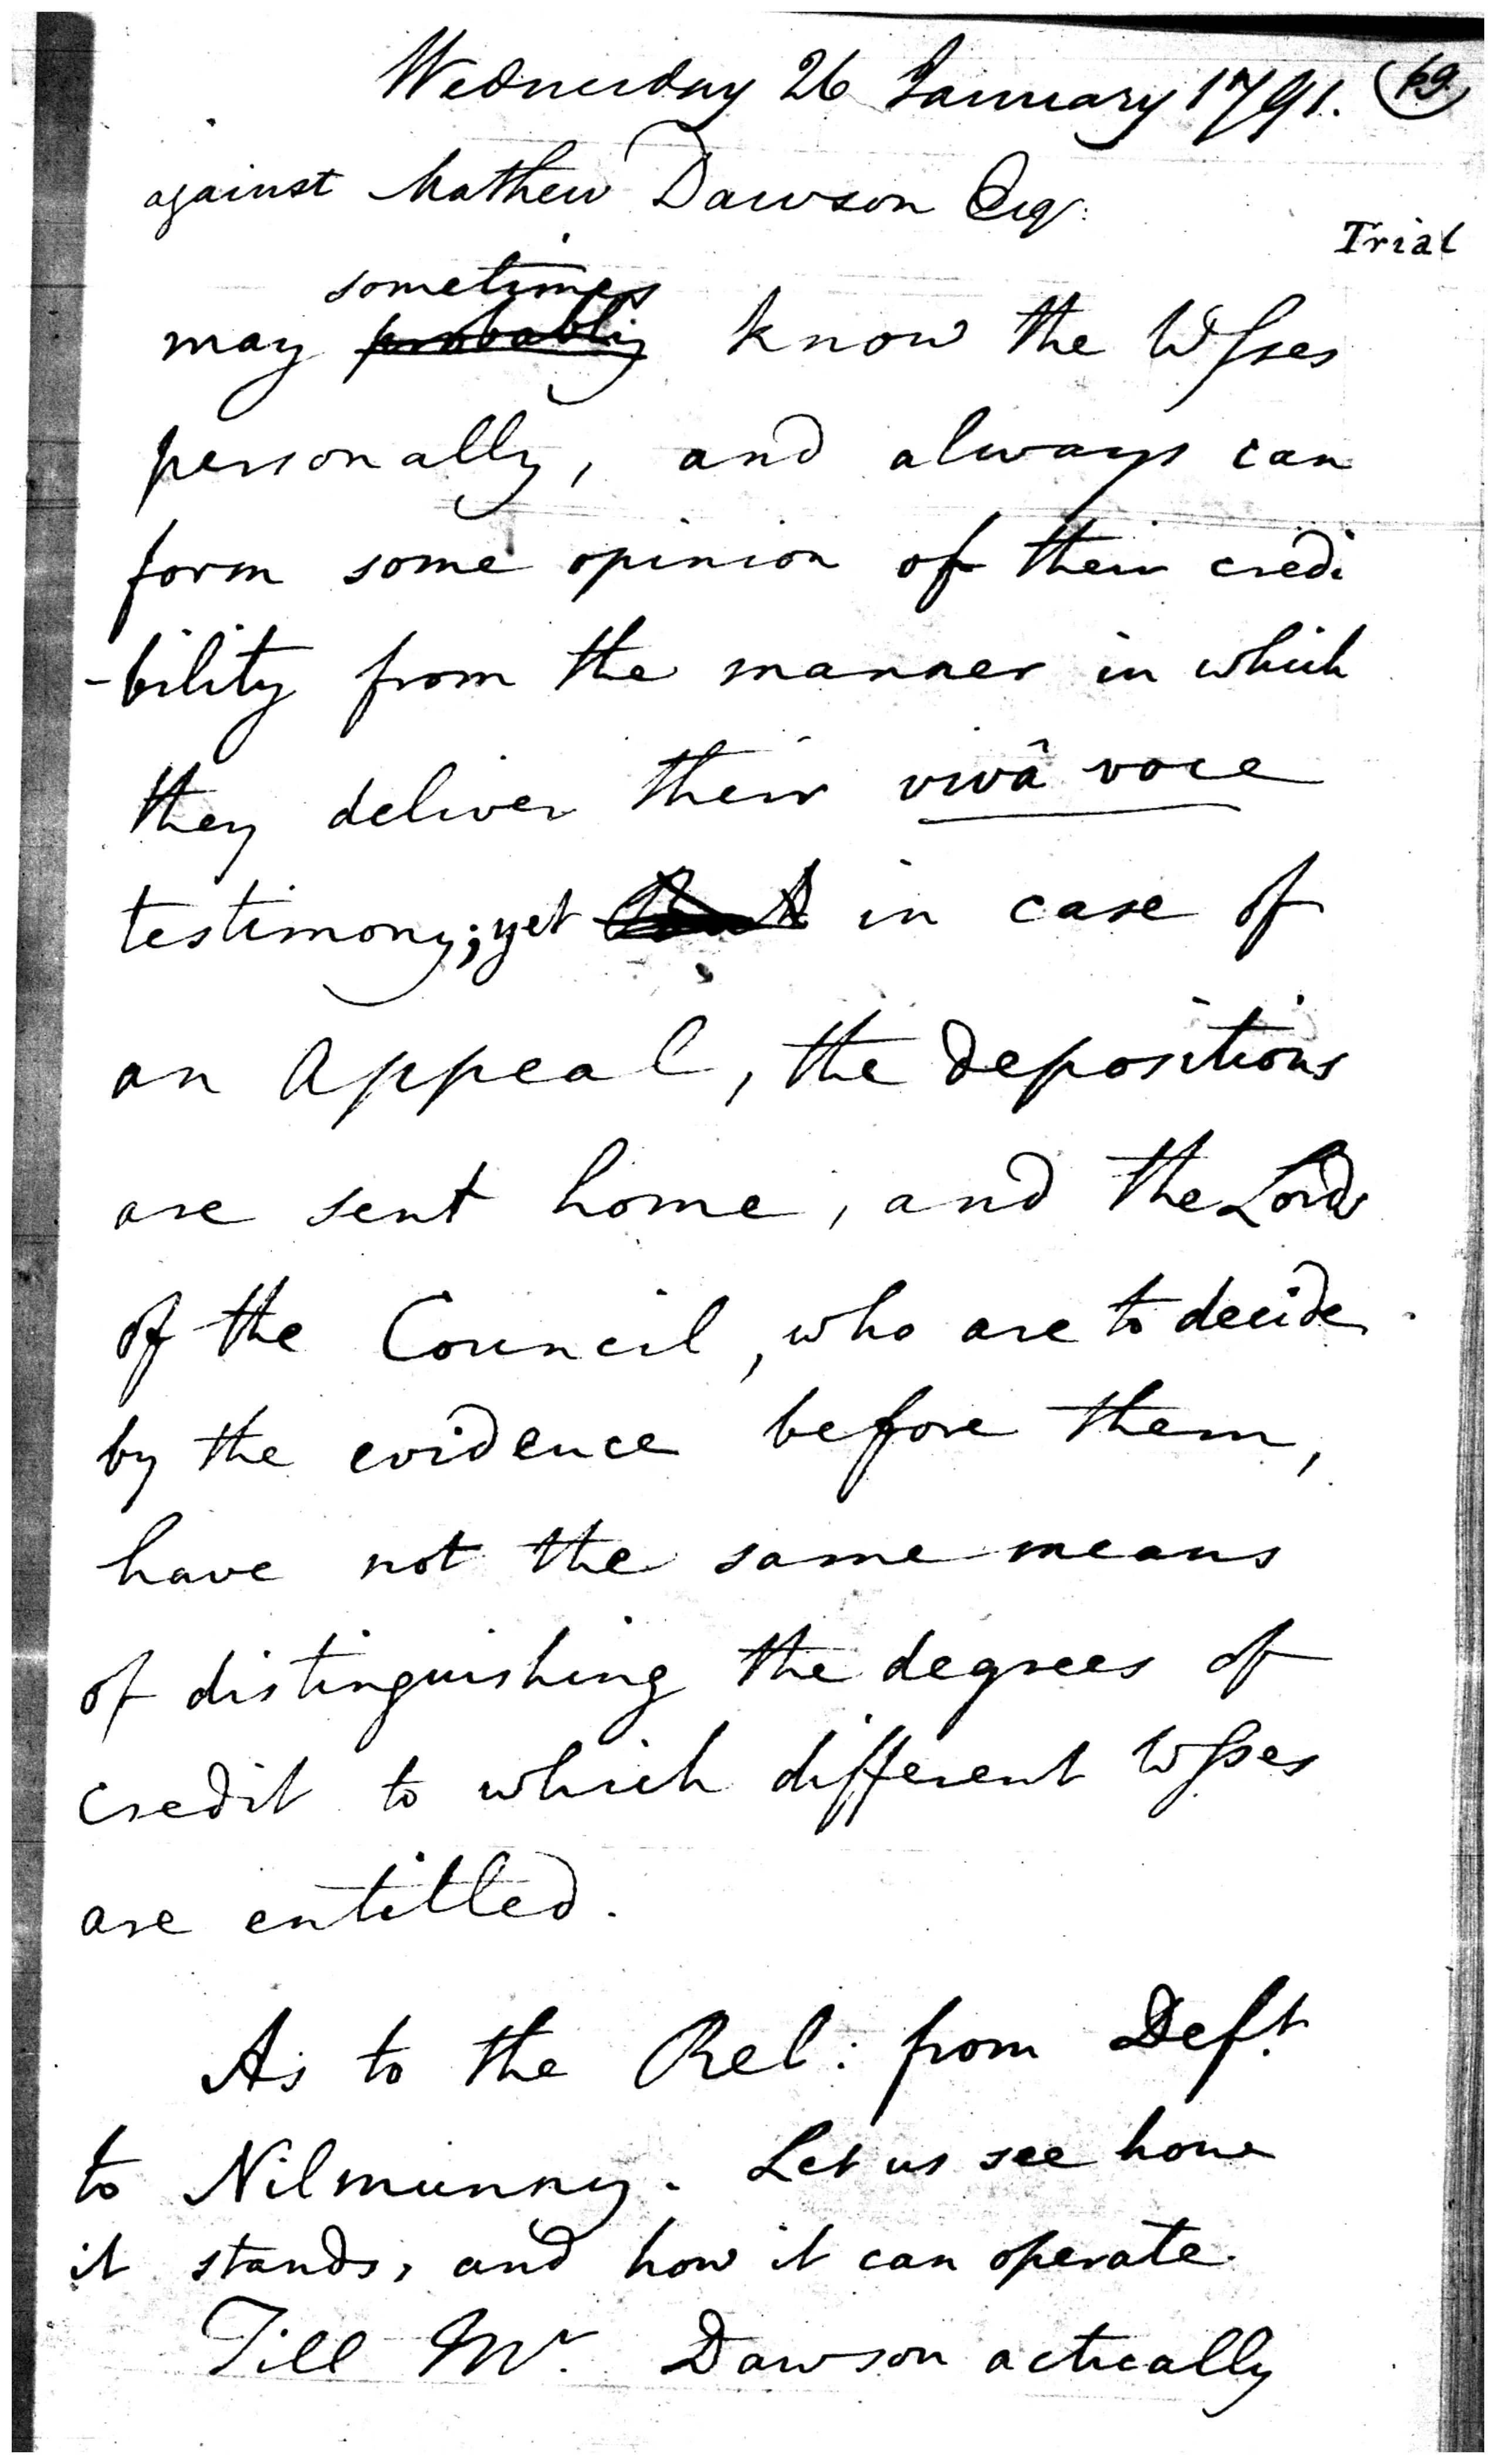 Wednesday 26 January 1791. (69)
against Mathew Dawson Esq:
Trial
sometimes
may probably know the Wsses
personally, and always can
form some opinion of their credi
-bility from the manner in which
they deliver their vivâ voce
testimony; yet in case of
an Appeal, the depositions
are sent home, and the Lords
of the Council, who are to decide
by the evidence before them,
have not the same means
of distinguishing the degrees of
credit to which different Wsses
are entitled.
As to the Rel: from Deft.
to Nilmunny. Let us see how
it stands, and how it can operate.
Till Mr. Dawson actually